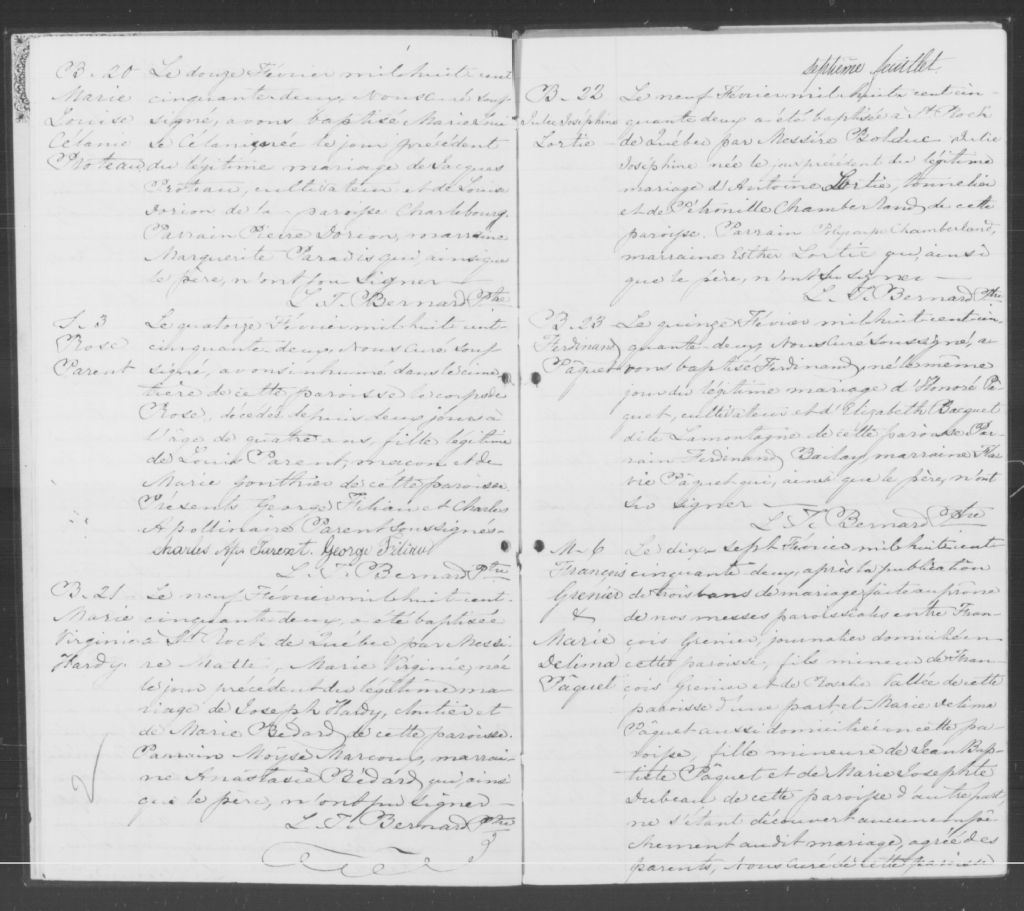 B. 20 Le douze Février mil huit cent
Marie cinquante deux, Nous curé souſ
Louise signé, avons baptisé Marie Loui
Célanie se Célanie née le jour précédent
Proteau du légitime mariage de Jacques
Proteau, cultivateur et de Louise
Dorion de la paroiſse Charlebourg.
Parrain Pierre Dorion, marraine
Marguerite Paradis qui, ainsi que
le père, n'ont su signer —
L. T. Bernard Ptre
S. 3 Le quatorze Février mil huit cent
Rose cinquante deux, Nous curé souſ
Parent signé, avons inhumé dans le cime
tière de cette paroisse le corps de
Rose, décédée depuis deux jours à
l'âge de quatre ans, fille légitime
de Louis Parent, maçon et de
Marie Gonthier de cette paroisse.
Présents George Filiau et Charles
Apollinaire Parent soussignés
Charles Ap. Parent. George Filiau
L. T. Bernard Ptre
B. 21 Le neuf Février mil huit cent
Marie cinquante deux, a été baptisée
Virginie à St Roch de Québec par Messi
Hardy re Matte, Marie Virginie, née
le jour précédent du légitime ma
riage de Joseph Hardy, et
de Marie Bédard de cette paroisse.
Parrain Moÿse Marcoux, marrai
ne Anastasie Bédard qui, ainsi
que le père, n'ont pu signer —
L. T. Bernard Ptre
Septième feuillet
B. 22 Le neuf Février mil huit cent cin
Julie Josephine quante deux a été baptisée à St Roch
Lortie de Québec par Messire Bolduc, Julie
Joséphine née le jour précédent du légitime
mariage d'Antoine Lortie, tonnelier
et de Pétronille Chamberland de cette
paroiſse. Parrain Chamberland,
marraine Esther Lortie qui, ainsi
que le père, n'ont su signer —
L. T. Bernard Ptre
B. 23 Le quinze Février mil huit cent cin
Ferdinand quante deux, Nous curé soussigné, a
Pâquet vons baptisé Ferdinand, né le même
jour du légitime mariage d'Honoré Pâ
quet, cultivateur et d'Elizabeth Pacquet
dite Lamontagne de cette paroisse. Par
rain Ferdinand Barlay, marraine Fla
vie Pâquet qui, ainsi que le père, n'ont
su signer —
L. T. Bernard Ptre
M. 6 Le dix-sept Février mil huit cent
François cinquante deux, après la publication
Grenier de trois bans de mariage faite au prône
& de nos messes paroissiales entre Fran
Marie çois Grenier, journalier domicilié en
Delima cette paroisse, fils mineur de Fran
Pâquet çois Grenier et de Rosalie Vallée de cette
paroisse d'une part, et Marie Delima
Pâquet aussi domiciliée en cette pa
roiſse, fille mineure de Jean Bap
tiste Pâquet et de Marie Josephte
Dubeau de cette paroiſse d'autre part,
ne s'étant découvert aucun empê
chement au dit mariage, agréé des
parents, Nous curé de cette paroisse